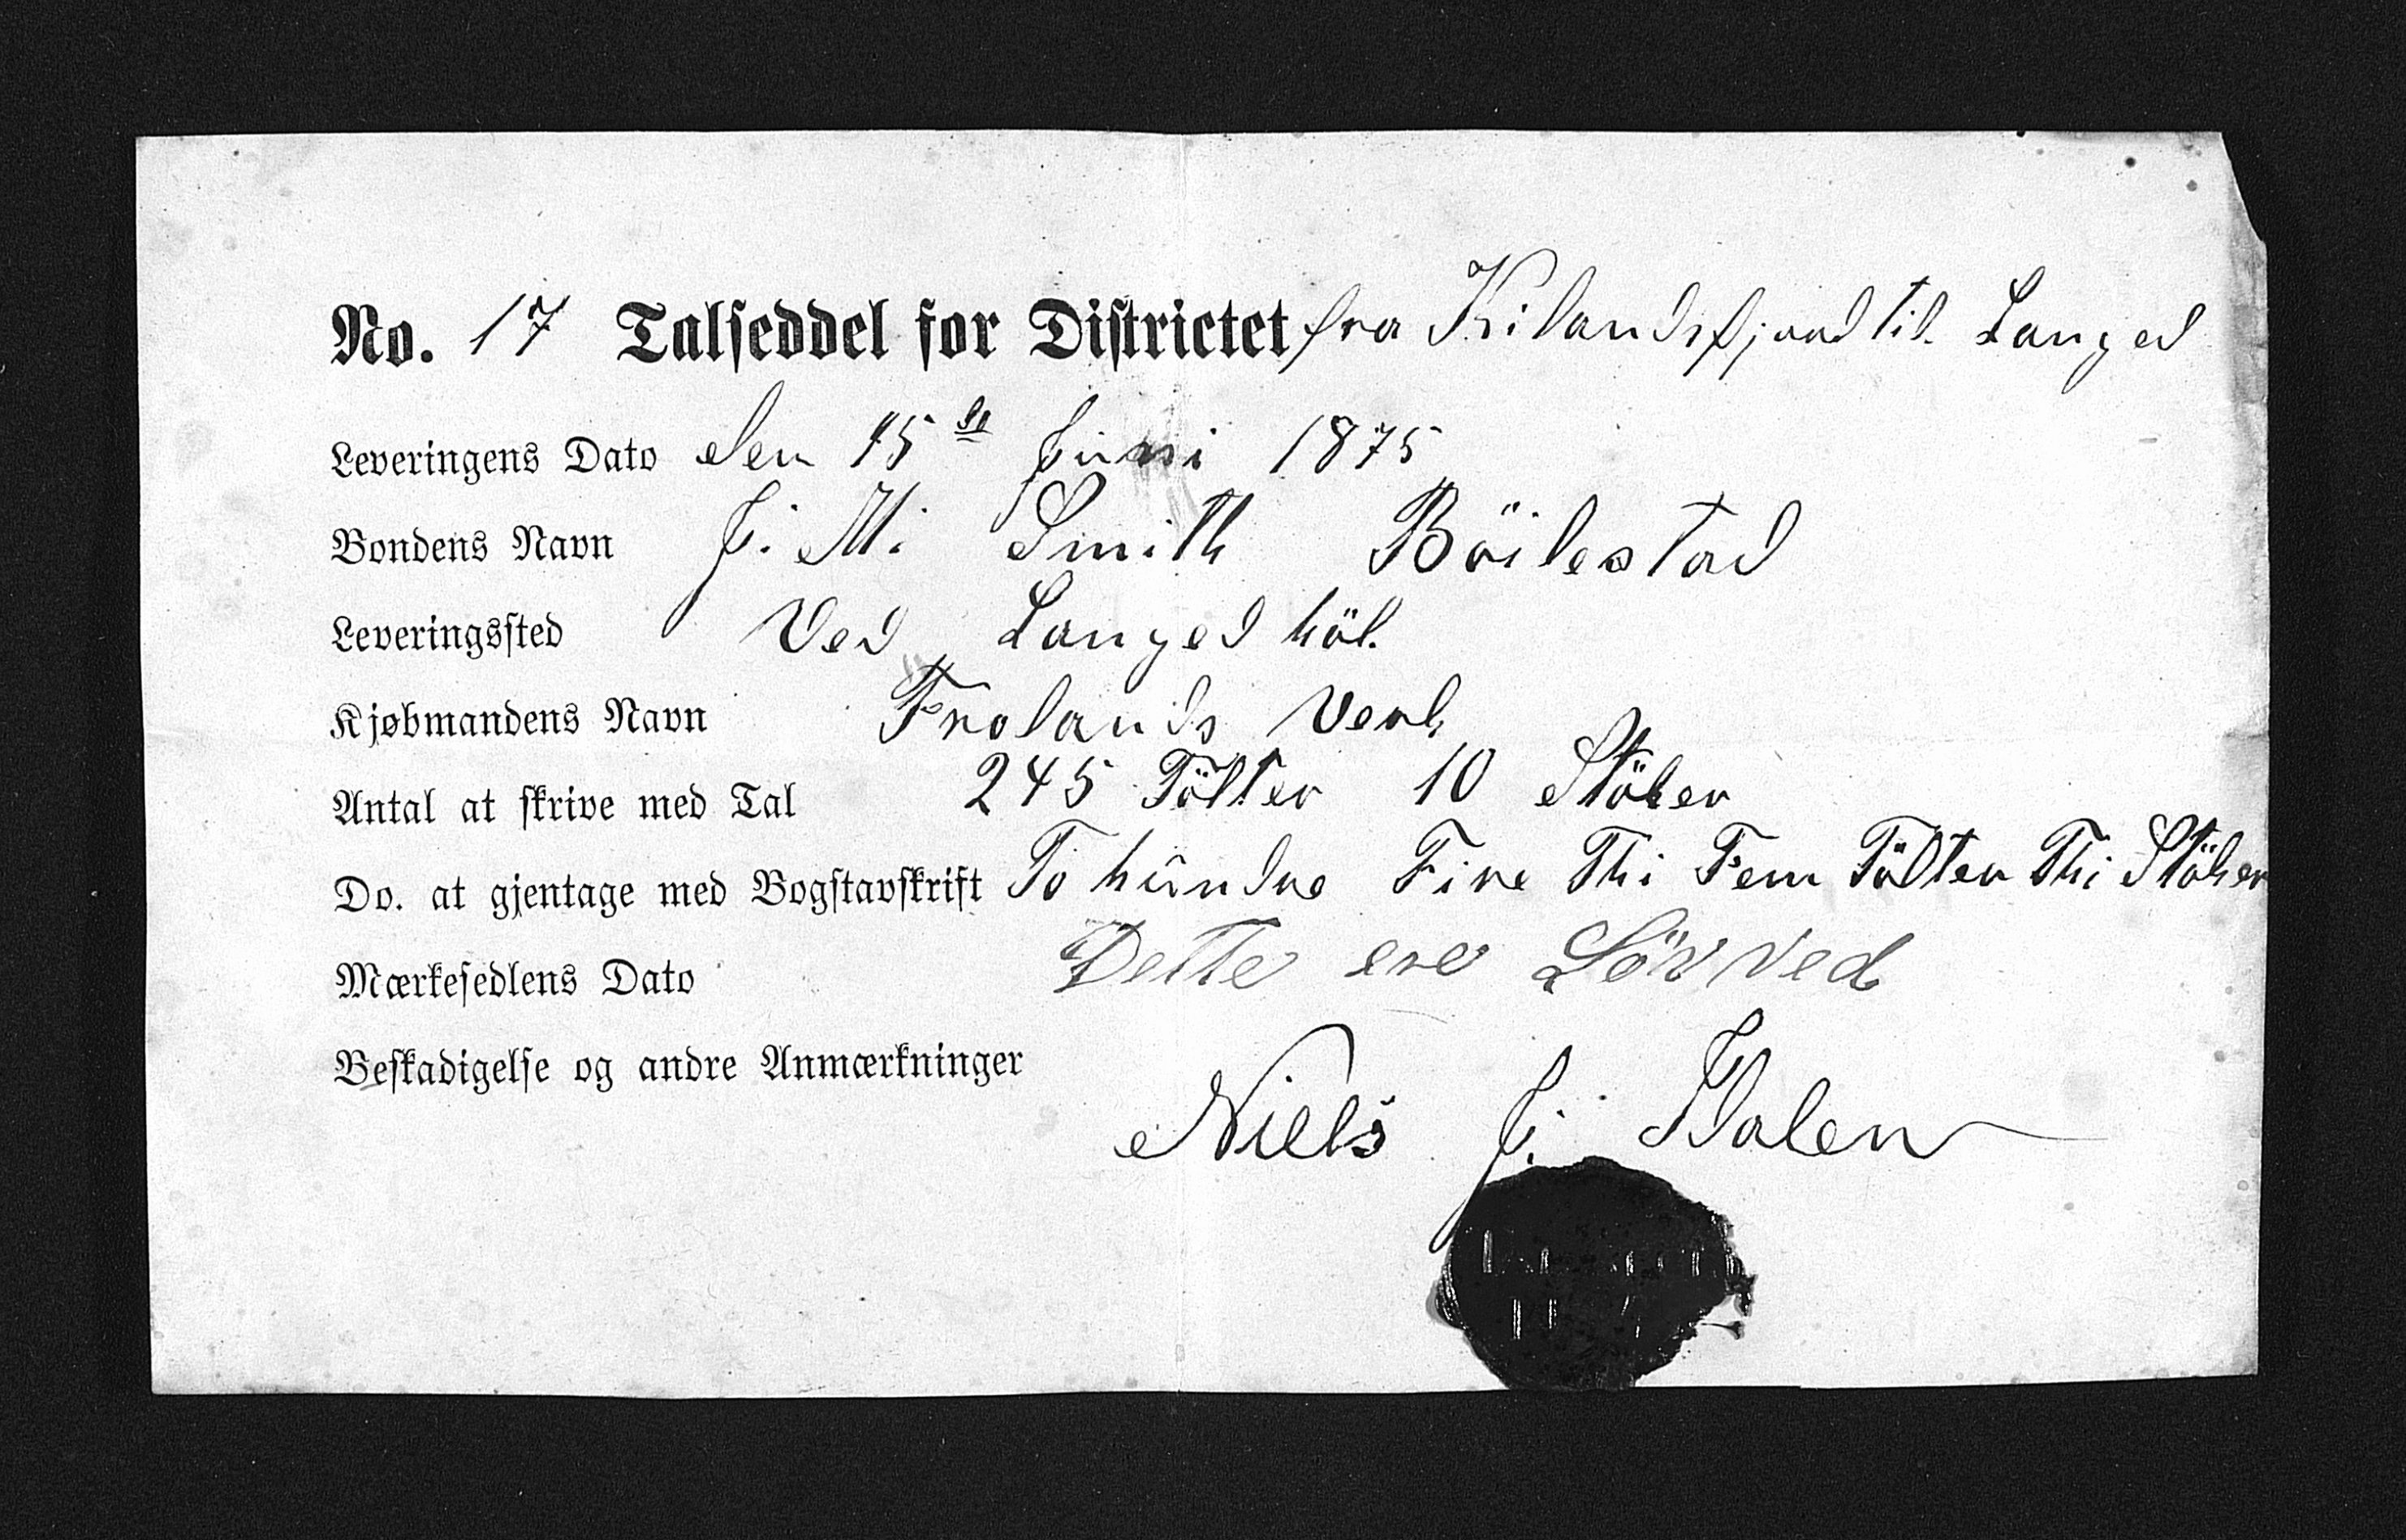 No. 17 Talseddel for Districtet fra Kilandsfjord til Langed
Leveringens Dato den 15de Juni 1875
Bondens Navn J. M. Smith Böilestad
Leveringssted Ved Langed höl.
Kjøbmandens Navn Frolands Verk
Antal at skrive med Tal 245 Tölter 10 Stöker
Do. at gjentage med Bogstavskrift To hundre Fire Thi Fem Tölter Thi Stöker
Mærkesedlens Dato Dette ere Löv Ved
Beskadigelse og andre Anmærkninger
Niels J. Dalen